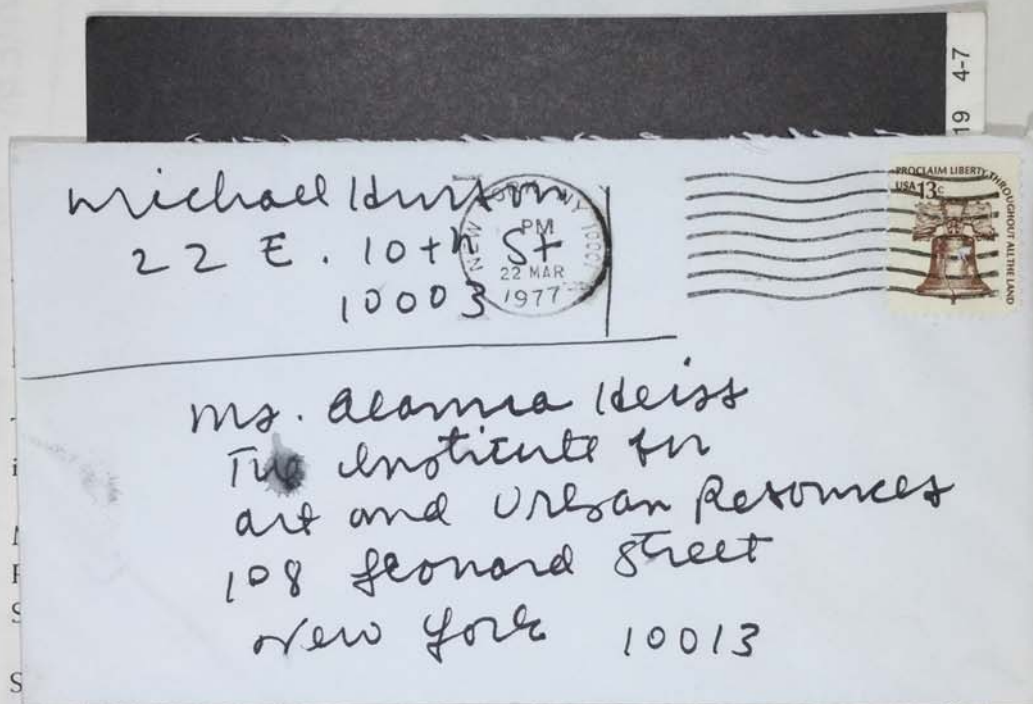 19 4-7
Michael Hurson
22 E. 10th St
10003
NEW YORK, NY 10001
PM
22 MAR
1977
PROCLAIM LIBERTY THROUGHOUT ALL THE LAND
USA 13c
Ms. Alanna Heiss
The Institute for
Art and Urban Resources
108 Leonard Street
New York 10013